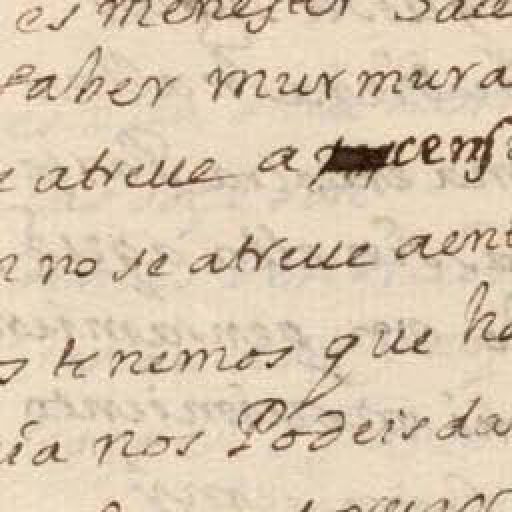 es menester
saber murmura
atreue a cens
no se atreue aent
s tenemos que ha
ia nos Podeis da